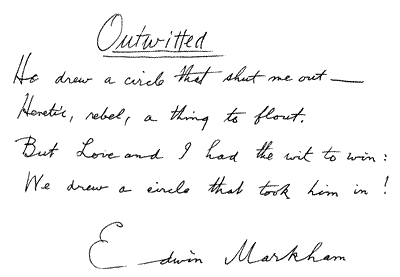 Outwitted
He drew a circle that shut me out —
Heretic, rebel, a thing to flout.
But Love and I had the wit to win:
We drew a circle that took him in!
Edwin Markham